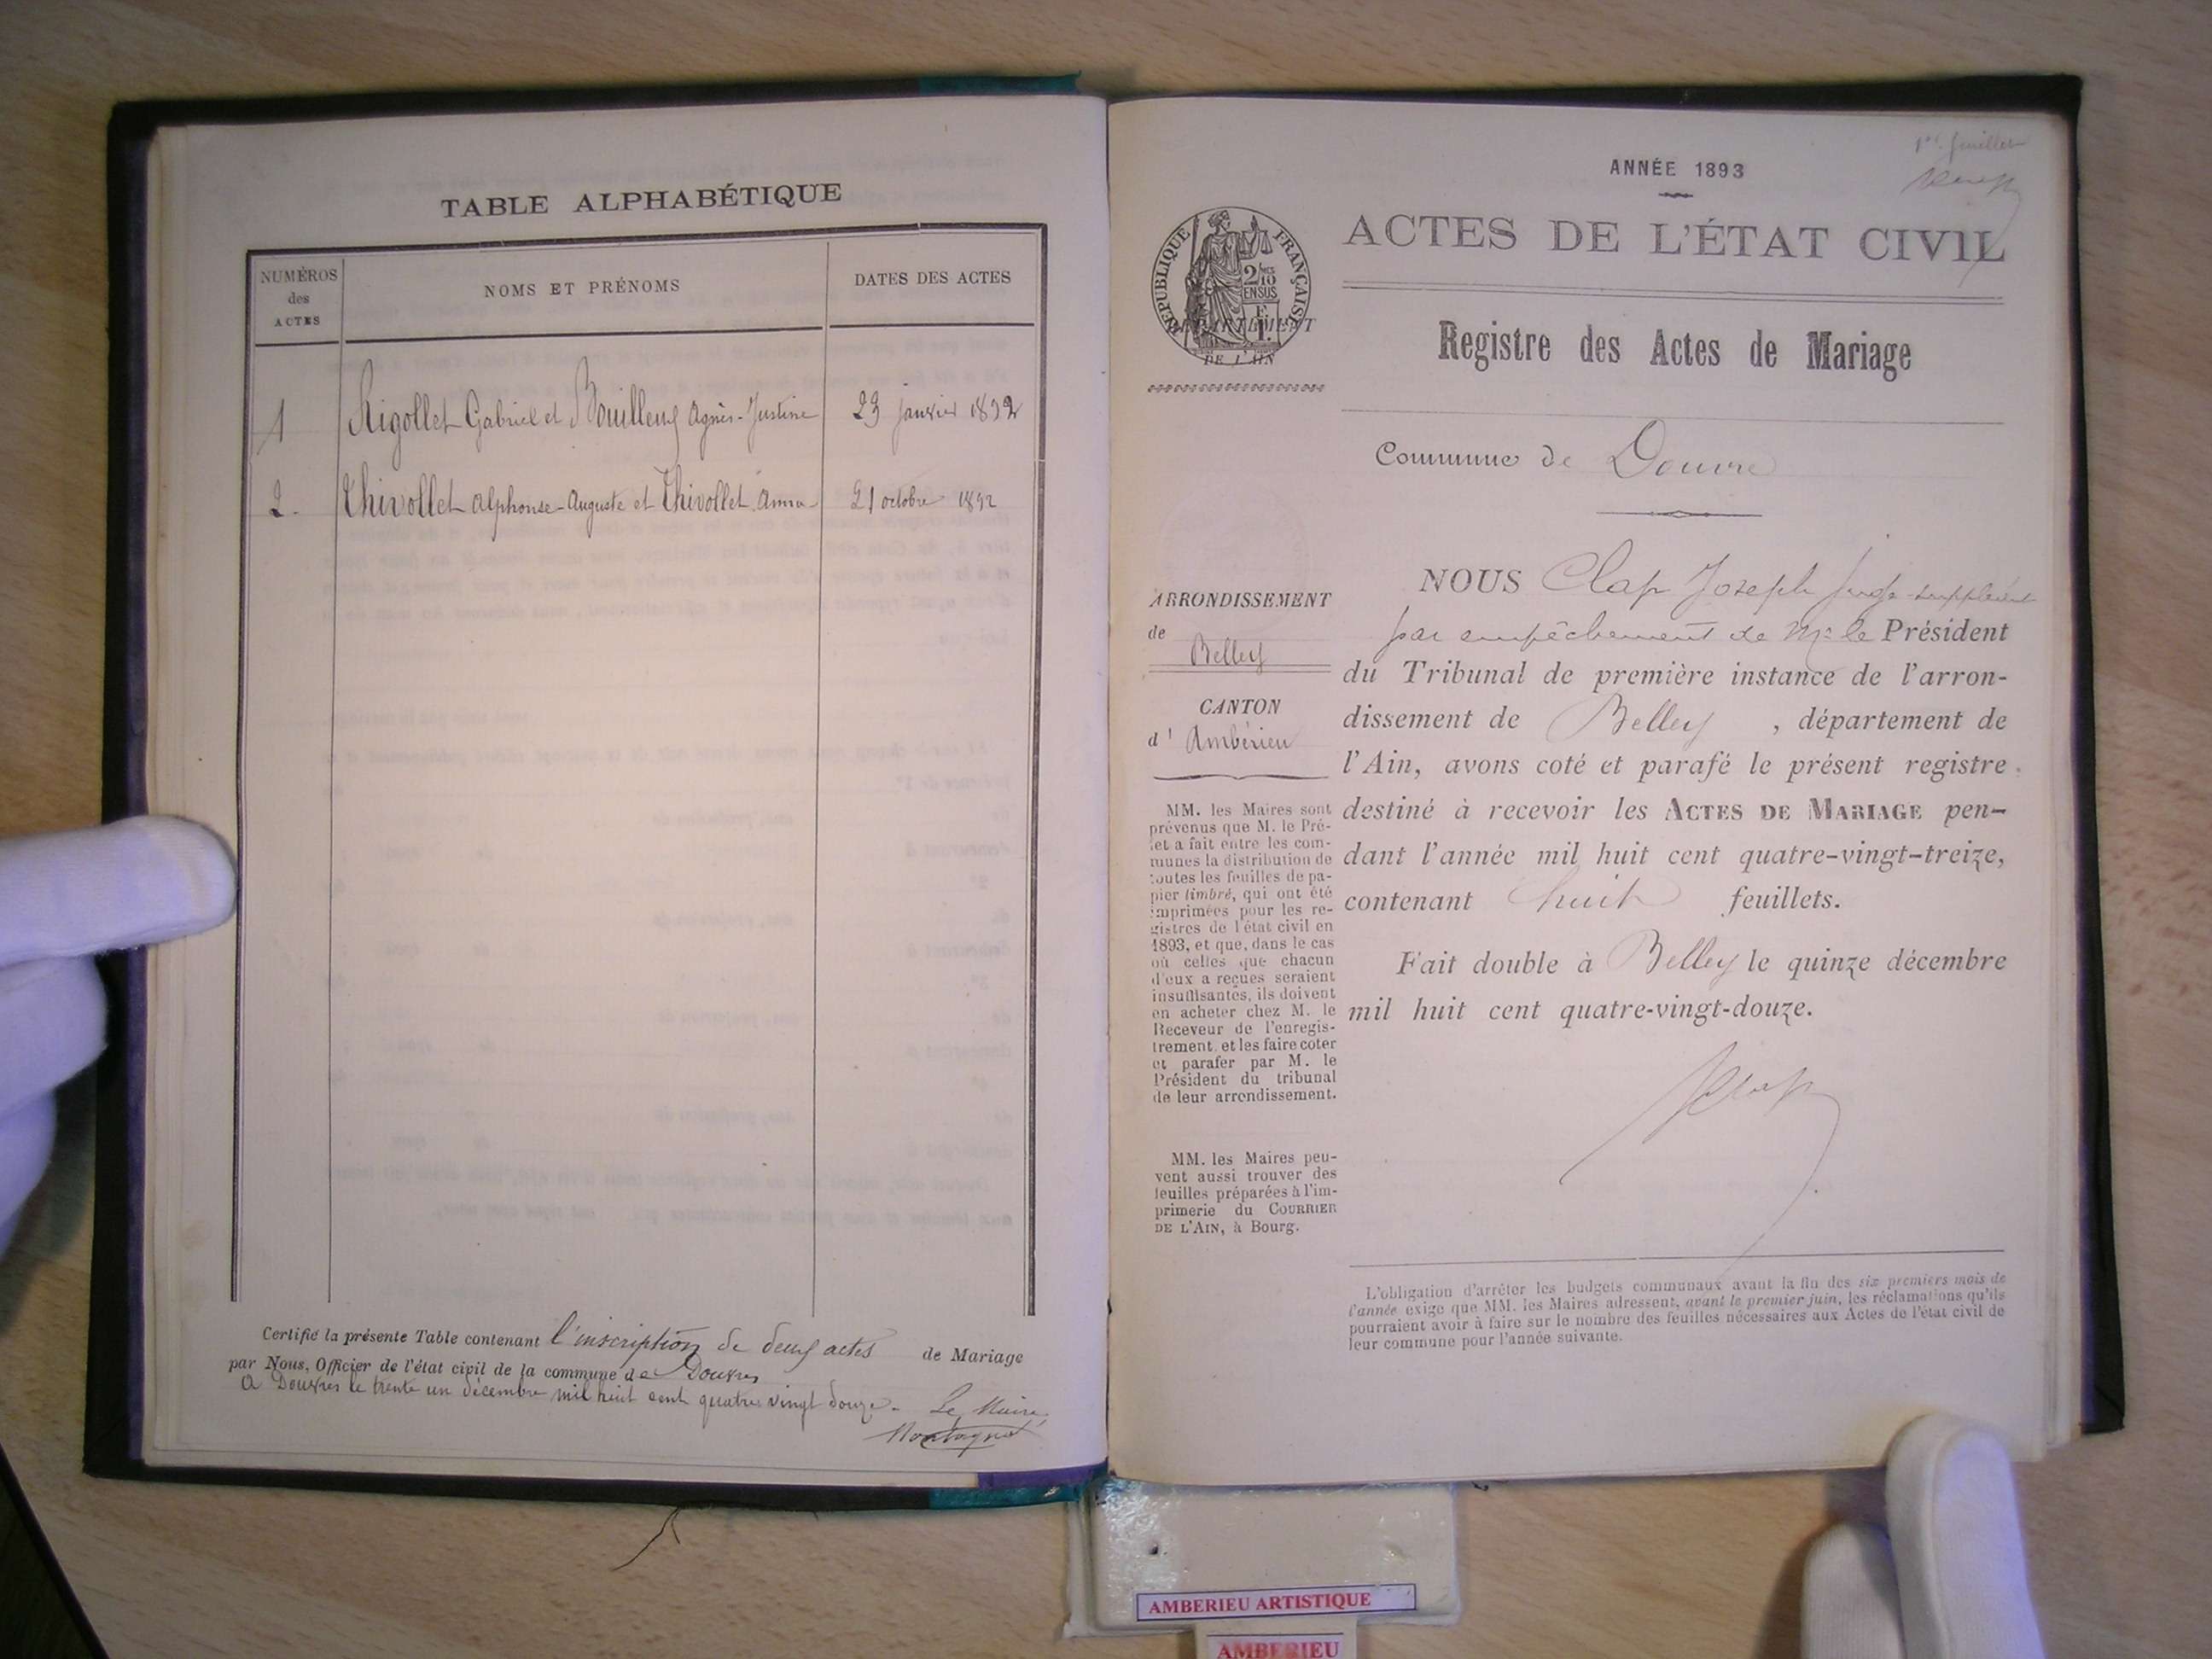 TABLE ALPHABÉTIQUE
NUMÉROS
des
ACTES
NOMS ET PRÉNOMS
DATES DES ACTES
1 Rigollet Gabriel et Bouilleux Agnès-Justine 23 janvier 1892
2. Thivollet Alphonse-Auguste et Thivollet Anna 21 octobre 1892
Certifié la présente Table contenant l'inscription de deux actes de Mariage
par Nous, Officier de l'état civil de la commune de Douvres
A Douvres le trente un décembre mil huit cent quatre vingt douze. Le Maire,
ANNÉE 1893
1er feuillet
ACTES DE L'ÉTAT CIVIL
RÉPUBLIQUE FRANÇAISE
2/10
EN SUS
DÉPARTEMENT
DE L'AIN
Registre des Actes de Mariage
Commune de Douvre
ARRONDISSEMENT
de
Belley
CANTON
d' Ambérieu
MM. les Maires sont
prévenus que M. le Pré-
fet a fait entre les com-
munes la distribution de
toutes les feuilles de pa-
pier timbré, qui ont été
imprimées pour les re-
gistres de l'état civil en
1893, et que, dans le cas
où celles que chacun
d'eux a reçues seraient
insuffisantes, ils doivent
en acheter chez M. le
Receveur de l'enregis-
trement, et les faire coter
et parafer par M. le
Président du tribunal
de leur arrondissement.
MM. les Maires peu-
vent aussi trouver des
feuilles préparées à l'im-
primerie du COURRIER
DE L'AIN, à Bourg.
NOUS Clap Joseph juge suppléant
par empêchement de Mr le Président
du Tribunal de première instance de l'arron-
dissement de Belley , département de
l'Ain, avons coté et parafé le présent registre
destiné à recevoir les ACTES DE MARIAGE pen-
dant l'année mil huit cent quatre-vingt-treize,
contenant huit feuillets.
Fait double à Belley le quinze décembre
mil huit cent quatre-vingt-douze.
Clap
L'obligation d'arrêter les budgets communaux avant la fin des six premiers mois de
l'année exige que MM. les Maires adressent, avant le premier juin, les réclamations qu'ils
pourraient avoir à faire sur le nombre des feuilles nécessaires aux Actes de l'état civil de
leur commune pour l'année suivante.
AMBERIEU ARTISTIQUE
AMBERIEU